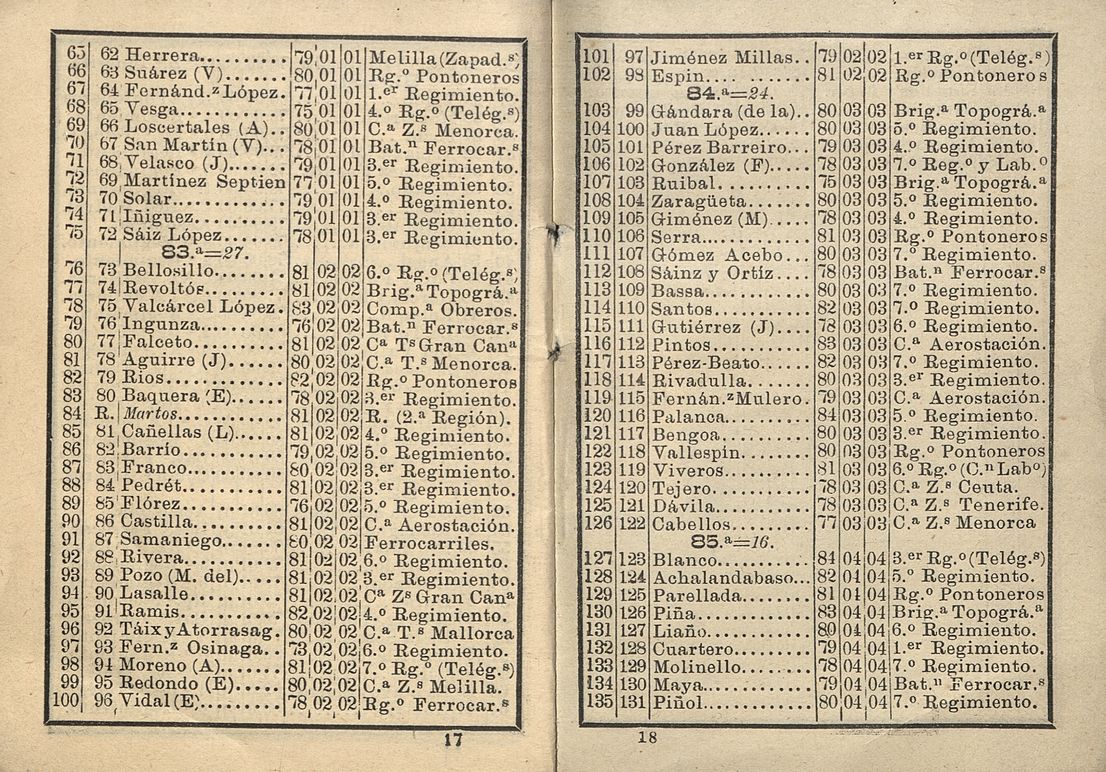 65 62 Herrera.......... 79 01 01 Melilla (Zapad.s)
66 63 Suárez (V)....... 80 01 01 Rg.º Pontoneros
67 64 Fernánd.z López. 77 01 01 1.er Regimiento.
68 65 Vesga............ 75 01 01 4.º Rg.º (Telég.s)
69 66 Loscertales (A).. 80 01 01 C.ª Z.s Menorca.
70 67 San Martín (V)... 78 01 01 Bat.n Ferrocar.s
71 68 Velasco (J)....... 79 01 01 3.er Regimiento.
72 69 Martínez Septien 77 01 01 5.º Regimiento.
73 70 Solar............. 79 01 01 4.º Regimiento.
74 71 Iñiguez........... 79 01 01 3.er Regimiento.
75 72 Sáiz López....... 78 01 01 3.er Regimiento.
83.ª=27.
76 73 Bellosillo........ 81 02 02 6.º Rg.º (Telég.s)
77 74 Revoltós......... 81 02 02 Brig.ª Topográ.ª
78 75 Valcárcel López. 83 02 02 Comp.ª Obreros.
79 76 Ingunza.......... 76 02 02 Bat.n Ferrocar.s
80 77 Falceto........... 81 02 02 Cª Ts Gran Canª
81 78 Aguirre (J)....... 80 02 02 C.ª T.s Menorca.
82 79 Rios.............. 82 02 02 Rg.º Pontoneros
83 80 Baquera (E)...... 78 02 02 3.er Regimiento.
84 R. Martos............ 81 02 02 R. (2.ª Región).
85 81 Cañellas (L)...... 81 02 02 4.º Regimiento.
86 82 Barrío............ 79 02 02 5.º Regimiento.
87 83 Franco........... 80 02 02 3.er Regimiento.
88 84 Pedrét............ 81 02 02 3.er Regimiento.
89 85 Flórez............ 76 02 02 5.º Regimiento.
90 86 Castilla.......... 81 02 02 C.ª Aerostación.
91 87 Samaniego....... 80 02 02 Ferrocarriles.
92 88 Rivera............ 81 02 02 6.º Regimiento.
93 89 Pozo (M. del)..... 81 02 02 3.er Regimiento.
94 90 Lasalle........... 81 02 02 Cª Zs Gran Canª
95 91 Ramis............ 82 02 02 4.º Regimiento.
96 92 Táix y Atorrasag. 80 02 02 C.ª T.s Mallorca
97 93 Fern.z Osinaga.. 73 02 02 6.º Regimiento.
98 94 Moreno (A)....... 81 02 02 7.º Rg.º (Telég.s)
99 95 Redondo (E)..... 80 02 02 C.ª Z.s Melilla.
100 96 Vidal (E)......... 78 02 02 Rg.º Ferrocar.s
17
101 97 Jiménez Millas.. 79 02 02 1.er Rg.º (Telég.s)
102 98 Espin.... ....... 81 02 02 Rg.º Pontoneros
84.ª=24.
103 99 Gándara (de la).. 80 03 03 Brig.ª Topográ.ª
104 100 Juan López...... 80 03 03 5.º Regimiento.
105 101 Pérez Barreiro... 79 03 03 4.º Regimiento.
106 102 González (F)..... 78 03 03 7.º Reg.º y Lab.º
107 103 Ruibal........... 75 03 03 Brig.ª Topográ.ª
108 104 Zaragüeta....... 80 03 03 5.º Regimiento.
109 105 Giménez (M)..... 78 03 03 4.º Regimiento.
110 106 Serra............. 81 03 03 Rg.º Pontoneros
111 107 Gómez Acebo... 80 03 03 7.º Regimiento.
112 108 Sáinz y Ortíz.... 78 03 03 Bat.n Ferrocar.s
113 109 Bassa............ 80 03 03 7.º Regimiento.
114 110 Santos........... 82 03 03 7.º Regimiento.
115 111 Gutiérrez (J).... 78 03 03 6.º Regimiento.
116 112 Pintos........... 83 03 03 C.ª Aerostación.
117 113 Pérez-Beato...... 82 03 03 7.º Regimiento.
118 114 Rivadulla........ 80 03 03 3.er Regimiento.
119 115 Fernán.z Mulero. 79 03 03 C.ª Aerostación.
120 116 Palanca.......... 84 03 03 5.º Regimiento.
121 117 Bengoa........... 80 03 03 3.er Regimiento.
122 118 Vallespín........ 80 03 03 Rg.º Pontoneros
123 119 Viveros.......... 81 03 03 6.º Rg.º (C.n Labº)
124 120 Tejero........... 78 03 03 C.ª Z.s Ceuta.
125 121 Dávila........... 78 03 03 C.ª Z.s Tenerife.
126 122 Cabellos......... 77 03 03 C.ª Z.s Menorca
85.ª=16.
127 123 Blanco........... 84 04 04 3.er Rg.º (Telég.s)
128 124 Achalandabaso... 82 04 04 5.º Regimiento.
129 125 Parellada........ 81 04 04 Rg.º Pontoneros
130 126 Piña............. 83 04 04 Brig.ª Topográ.ª
131 127 Liaño............ 80 04 04 6.º Regimiento.
132 128 Cuartero......... 79 04 04 1.er Regimiento.
133 129 Molinello........ 78 04 04 7.º Regimiento.
134 130 Maya............. 79 04 04 Bat.n Ferrocar.s
135 131 Piñol............ 80 04 04 7.º Regimiento.
18